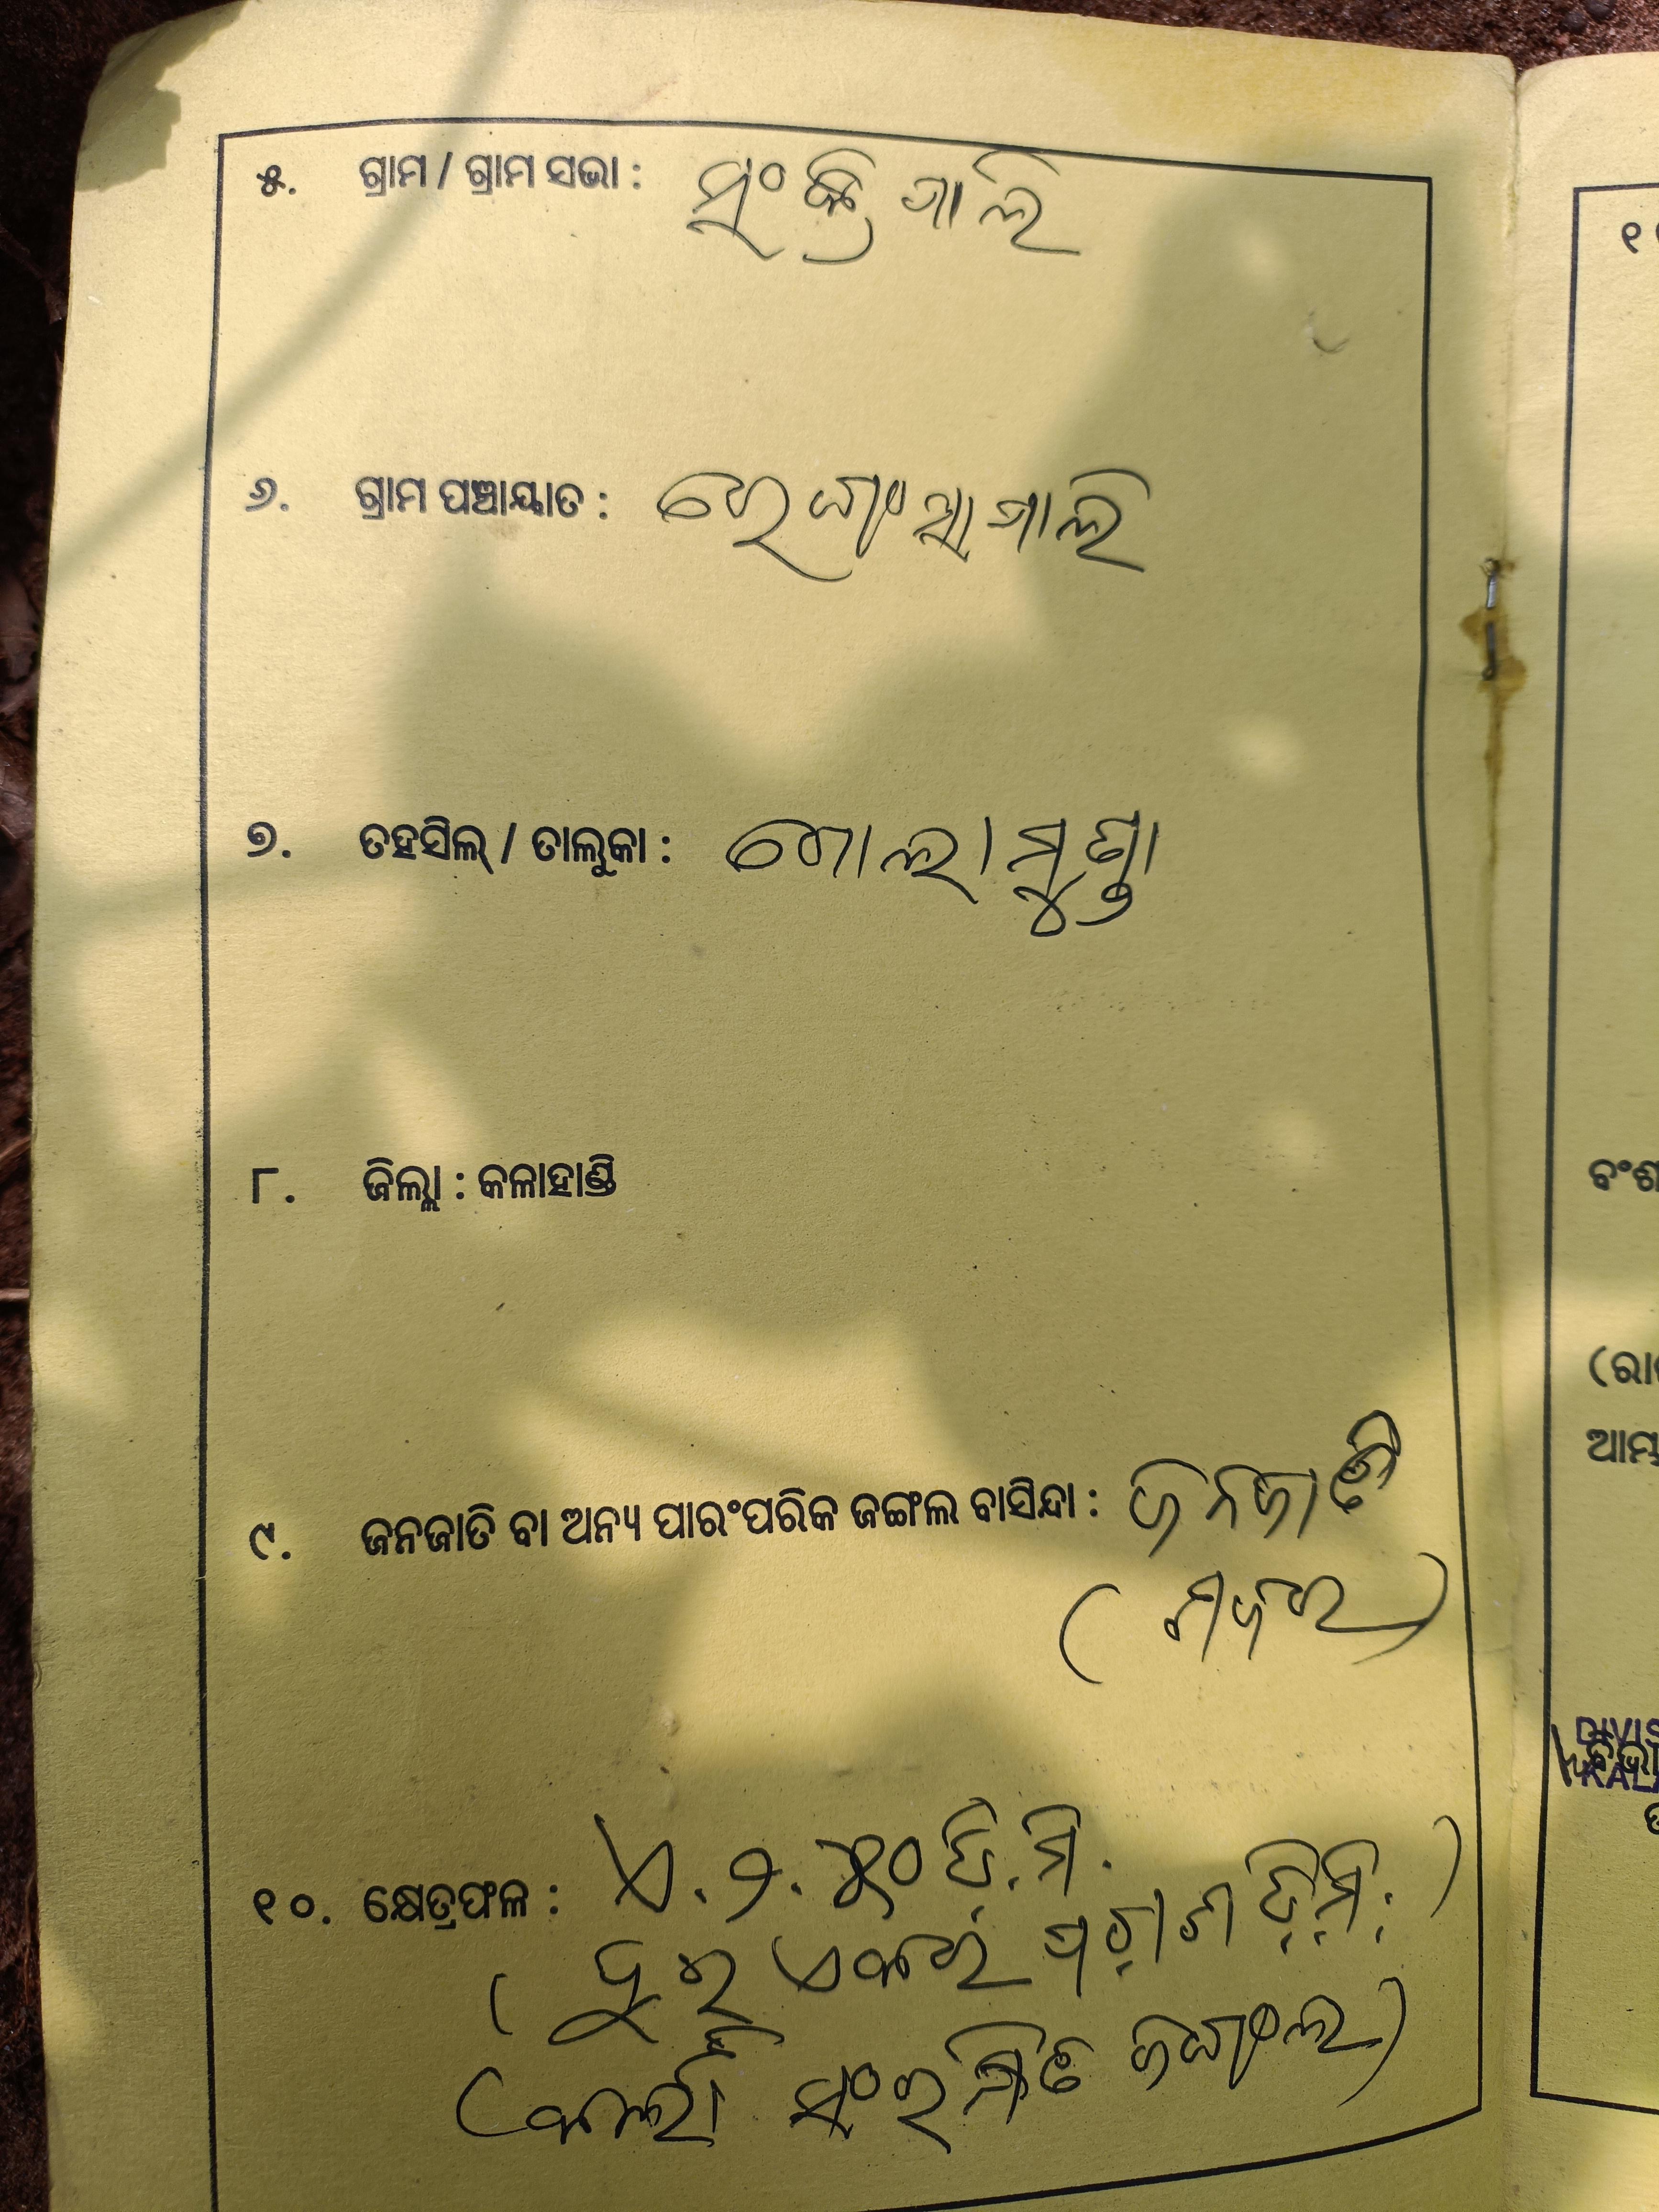 ୫. ଗ୍ରାମ / ଗ୍ରାମ ସଭା : ଗାଲି
୬. ଗ୍ରାମ ପଞ୍ଚାୟାତ :
୭. ତହସିଲ୍ / ତାଲୁକା : ଗୋଲାମୁଣ୍ଡା
୮. ଜିଲ୍ଲା : କଳାହାଣ୍ଡି
୯. ଜନଜାତି ବା ଅନ୍ୟ ପାରଂପରିକ ଜଙ୍ଗଲ ବାସିନ୍ଦା : ଜନଜାତି
୧୦. କ୍ଷେତ୍ରଫଳ : ଏ. ୨. ୫୦ ଡି.ମି.
( ଦୁଇ ଏକର ପଚାଶ ଡି.ମି. )
ସଂରକ୍ଷିତ ଜଙ୍ଗଲ)
୧
ବଂଶ
(ରା
ଆମ୍ଭ
DIVIS
KALA